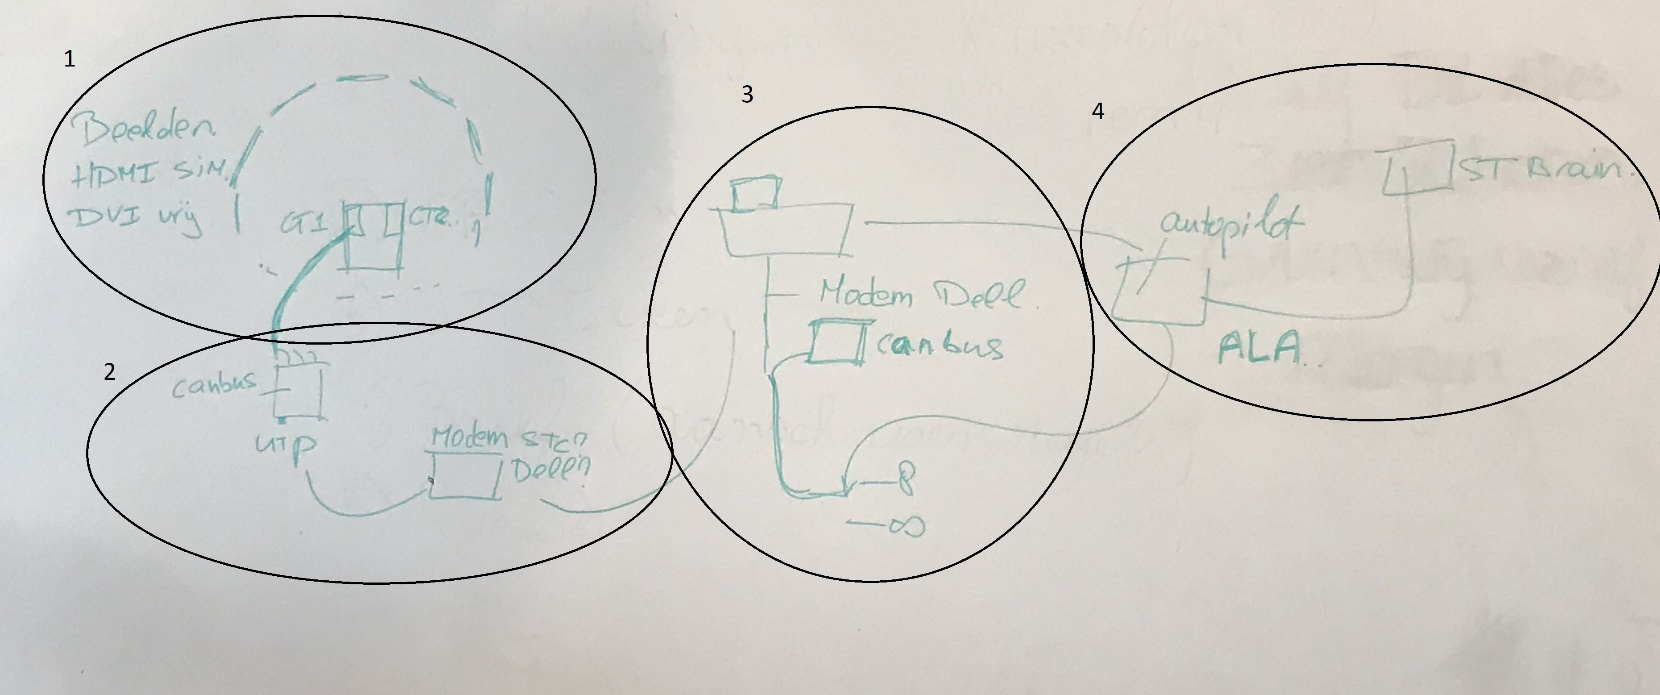 1
Beelden
HDMI SiM.
DVI vrij
CT1
CT2
2
canbus
UTP
Modem STC?
Dell?
3
Modem Dell.
canbus
8
∞
4
autopilot
ST Brain.
ALA..